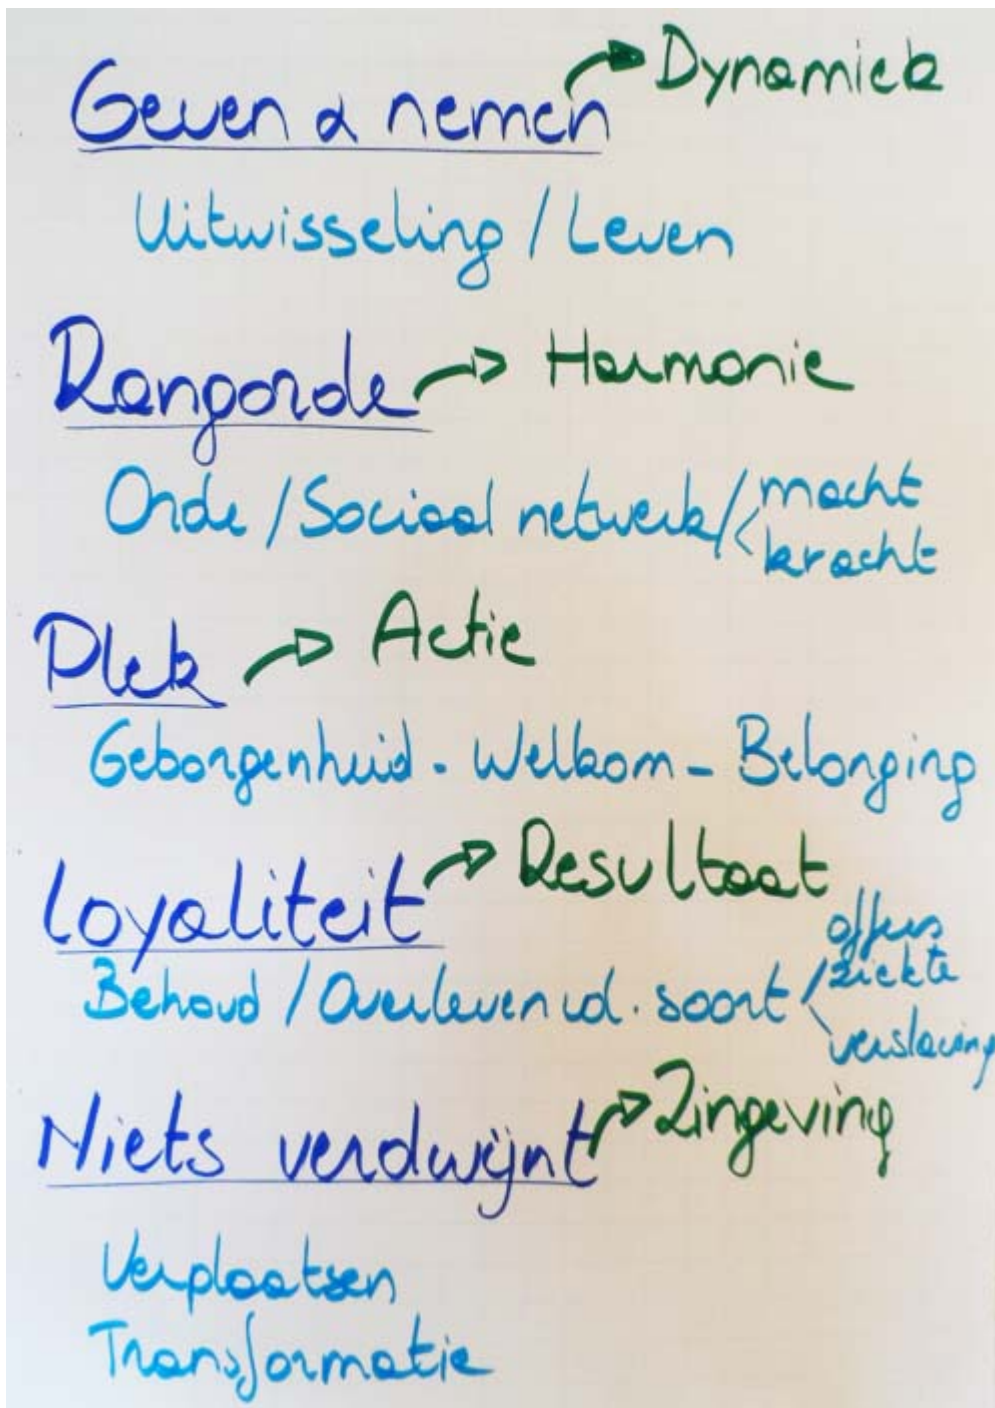 Geven & nemen → Dynamiek
Uitwisseling / Leven
Rangorde → Harmonie
Orde / Sociaal netwerk / < macht
kracht
Plek → Actie
Geborgenheid - Welkom - Belonging
Loyaliteit → Resultaat
Behoud / Overleven v.d. soort / offers
ziekte
verslaving
Niets verdwijnt → Zingeving
Verplaatsen
Transformatie